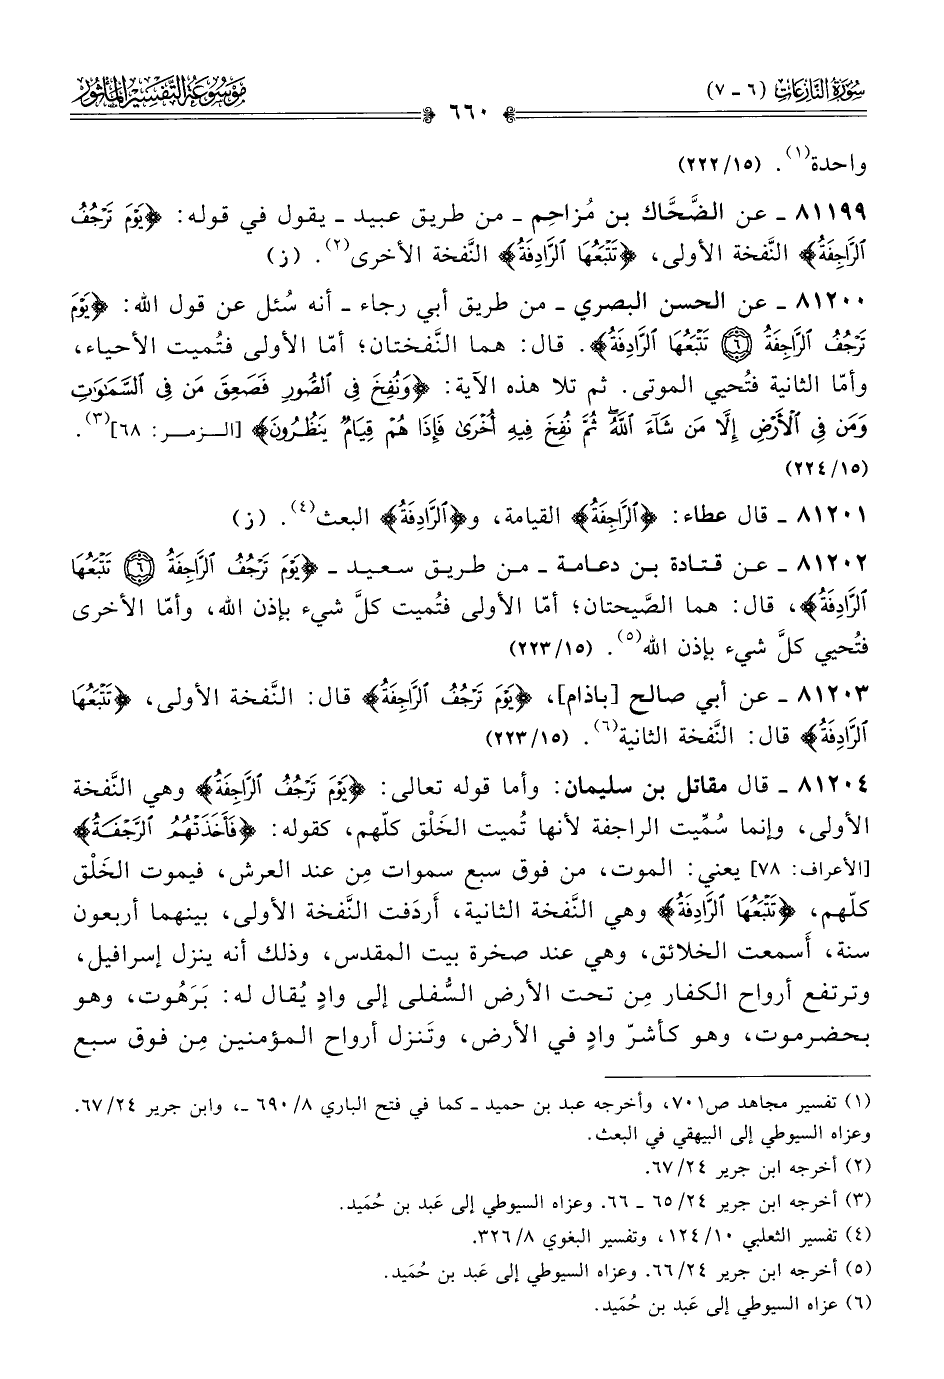 سورة النازعات (٦ - ٧)
٦٦٠
موسوعة التفسير المأثور
واحدة(١). (٢٢٢/١٥)
٨١١٩٩ ـ عن الضَّحَّاك بن مُزاحِم ـ من طريق عبيد ـ يقول في قوله: ﴿يَوْمَ تَرْجُفُ
ٱلرَّاجِفَةُ﴾ النَّفخة الأولى، ﴿تَتْبَعُهَا ٱلرَّادِفَةُ﴾ النَّفخة الأخرى(٢). (ز)
٨١٢٠٠ ـ عن الحسن البصري ـ من طريق أبي رجاء ـ أنه سُئل عن قول الله: ﴿يَوْمَ
تَرْجُفُ ٱلرَّاجِفَةُ ۝٦ تَتْبَعُهَا ٱلرَّادِفَةُ﴾. قال: هما النَّفختان؛ أمّا الأولى فتُميت الأحياء،
وأمّا الثانية فتُحيي الموتى. ثم تلا هذه الآية: ﴿وَنُفِخَ فِى ٱلصُّورِ فَصَعِقَ مَن فِى ٱلسَّمَٰوَٰتِ
وَمَن فِى ٱلْأَرْضِ إِلَّا مَن شَآءَ ٱللَّهُ ۖ ثُمَّ نُفِخَ فِيهِ أُخْرَىٰ فَإِذَا هُمْ قِيَامٌ يَنظُرُونَ﴾ [الزمر: ٦٨](٣).
(٢٢٤/١٥)
٨١٢٠١ ـ قال عطاء: ﴿ٱلرَّاجِفَةُ﴾ القيامة، و﴿ٱلرَّادِفَةُ﴾ البعث(٤). (ز)
٨١٢٠٢ ـ عن قتادة بن دعامة ـ من طريق سعيد ـ ﴿يَوْمَ تَرْجُفُ ٱلرَّاجِفَةُ ۝٦ تَتْبَعُهَا
ٱلرَّادِفَةُ﴾، قال: هما الصَّيحتان؛ أمّا الأولى فتُميت كلَّ شيء بإذن الله، وأمّا الأخرى
فتُحيي كلَّ شيء بإذن الله(٥). (٢٢٣/١٥)
٨١٢٠٣ ـ عن أبي صالح [باذام]، ﴿يَوْمَ تَرْجُفُ ٱلرَّاجِفَةُ﴾ قال: النَّفخة الأولى، ﴿تَتْبَعُهَا
ٱلرَّادِفَةُ﴾ قال: النَّفخة الثانية(٦). (٢٢٣/١٥)
٨١٢٠٤ ـ قال مقاتل بن سليمان: وأما قوله تعالى: ﴿يَوْمَ تَرْجُفُ ٱلرَّاجِفَةُ﴾ وهي النَّفخة
الأولى، وإنما سُمِّيت الراجفة لأنها تُميت الخَلْق كلّهم، كقوله: ﴿فَأَخَذَتْهُمُ ٱلرَّجْفَةُ﴾
[الأعراف: ٧٨] يعني: الموت، من فوق سبع سموات مِن عند العرش، فيموت الخَلْق
كلّهم، ﴿تَتْبَعُهَا ٱلرَّادِفَةُ﴾ وهي النَّفخة الثانية، أَردَفت النَّفخة الأولى، بينهما أربعون
سنة، أَسمعت الخلائق، وهي عند صخرة بيت المقدس، وذلك أنه ينزل إسرافيل،
وترتفع أرواح الكفار مِن تحت الأرض السُّفلى إلى وادٍ يُقال له: بَرَهُوت، وهو
بحضرموت، وهو كأشرّ وادٍ في الأرض، وتَنزل أرواح المؤمنين مِن فوق سبع
(١) تفسير مجاهد ص٧٠١، وأخرجه عبد بن حميد ـ كما في فتح الباري ٨/ ٦٩٠ ـ، وابن جرير ٢٤/ ٦٧.
وعزاه السيوطي إلى البيهقي في البعث.
(٢) أخرجه ابن جرير ٢٤/ ٦٧.
(٣) أخرجه ابن جرير ٢٤/ ٦٥ ـ ٦٦. وعزاه السيوطي إلى عَبد بن حُمَيد.
(٤) تفسير الثعلبي ١٠/ ١٢٤، وتفسير البغوي ٨/ ٣٢٦.
(٥) أخرجه ابن جرير ٢٤/ ٦٦. وعزاه السيوطي إلى عَبد بن حُمَيد.
(٦) عزاه السيوطي إلى عَبد بن حُمَيد.